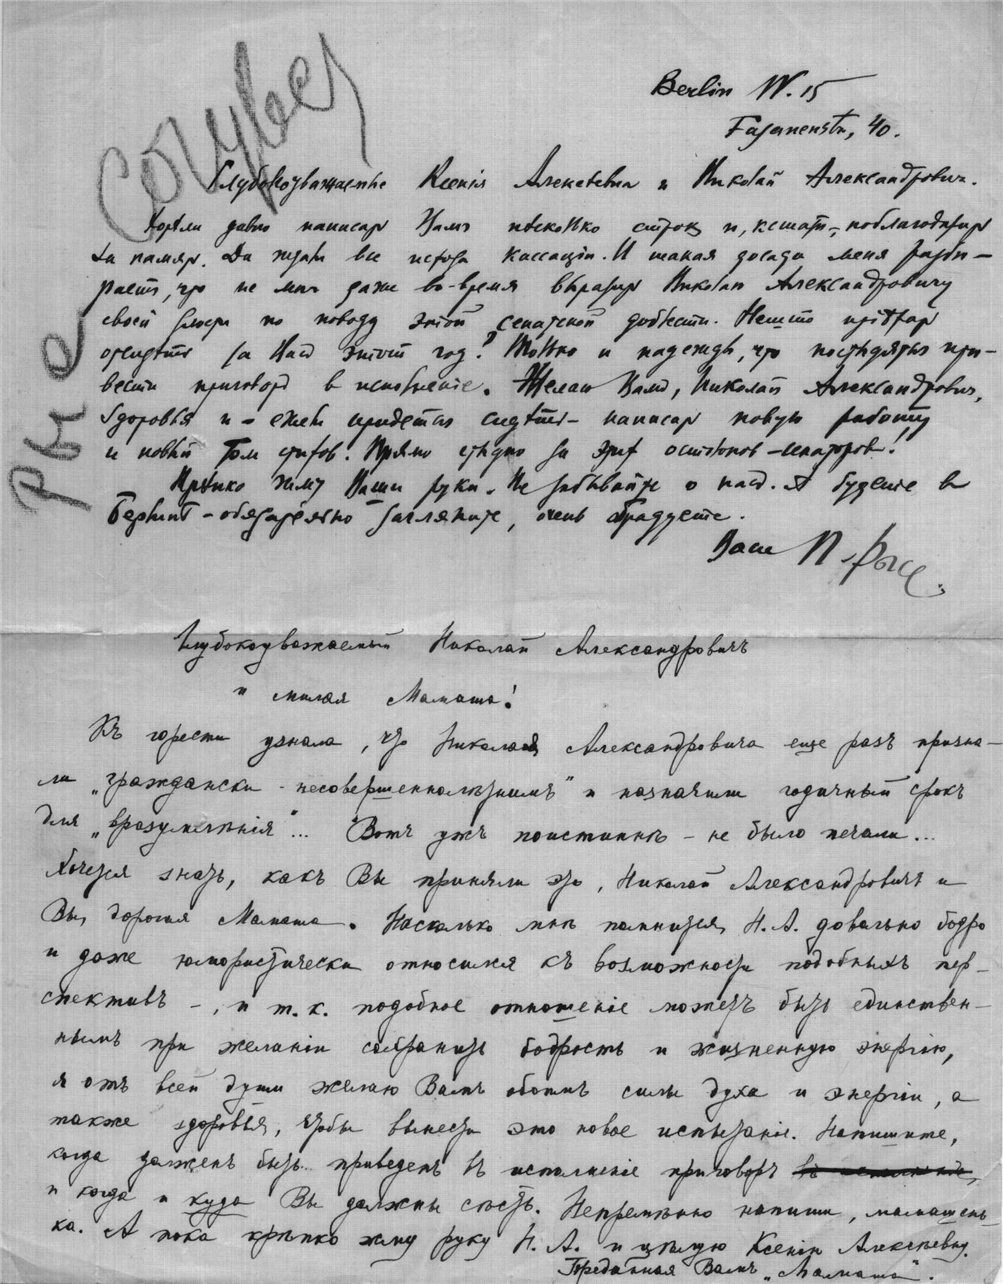 Berlin W. 15
Fasanenstr, 40.
Глубокоуважаемые Ксенія Алексѣевна и Николай Александрович.
Хотѣли давно написать Вамъ нѣсколько строк и, кстати, поблагодарить
за память. Да ждали все исхода кассаціи. И такая досада меня разби-
рает, что не могу даже во-время выразить Николаю Александровичу
своей злости по поводу этой сенатской доблести.
отсидѣть за Нас этот год? Только и надежды, что постыдятся при-
вести приговор в исполненіе. Желаю Вам, Николай Александрович,
здоровья и - ежели придется сидѣть - написать новую работу
и новый том стихов! Прямо стыдно за этих остолопов-сенаторов!
Крѣпко жму Ваши руки. Не забывайте о нас. А будете в
Берлинѣ - обязательно загляните, очень обрадуете.
Ваш П. Рысс.
Рысс
Глубокоуважаемый Николай Александровичъ
и милая Мамаша!
Къ горести узнала, что Николая Александровича еще разъ призна-
ли „граждански-несовершеннолѣтнимъ" и назначили годичный срокъ
для „вразумленія"... Вотъ ужъ поистинѣ - не было печали...
Хочется знать, какъ Вы приняли это, Николай Александровичъ и
Вы, дорогая Мамаша. Насколько мнѣ помнится, Н. А. довольно бодро
и даже юмористически относился къ возможности подобныхъ пер-
спективъ -, и т. к. подобное отношеніе можетъ быть единствен-
нымъ при желаніи сохранить бодрость и жизненную энергію,
я отъ всей души желаю Вамъ обоимъ силы духа и энергіи, а
также здоровья, чтобы вынести это новое испытаніе. Напишите,
когда долженъ быть приведенъ въ исполненіе приговоръ въ исполненіе,
и когда и куда Вы должны сѣсть. Непремѣнно напиши, мамашень-
ка. А пока крѣпко жму руку Н. А. и цѣлую Ксенію Алексѣевну.
Преданная Вамъ „Мамаша".